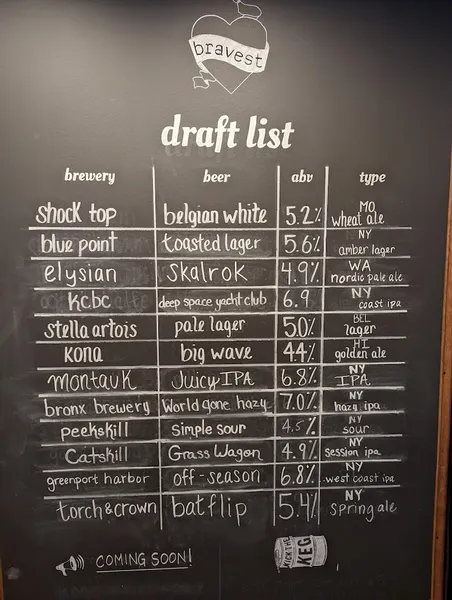 bravest
draft list
brewery beer abv type
shock top belgian white 5.2% MO wheat ale
blue point toasted lager 5.6% NY amber lager
elysian Skalrok 4.9% WA nordic pale ale
kcbc deep space yacht club 6.9 NY coast ipa
stella artois pale lager 5.0% BEL lager
kona big wave 4.4% HI golden ale
montauk Juicy IPA 6.8% NY IPA
bronx brewery World gone hazy 7.0% NY hazy ipa
peekskill Simple sour 4.5% NY sour
Catskill Grass Wagon 4.9% NY session ipa
greenport harbor off-season 6.8% NY west coast ipa
torch & crown bat flip 5.4% NY spring ale
COMING SOON!
KICK THE KEG